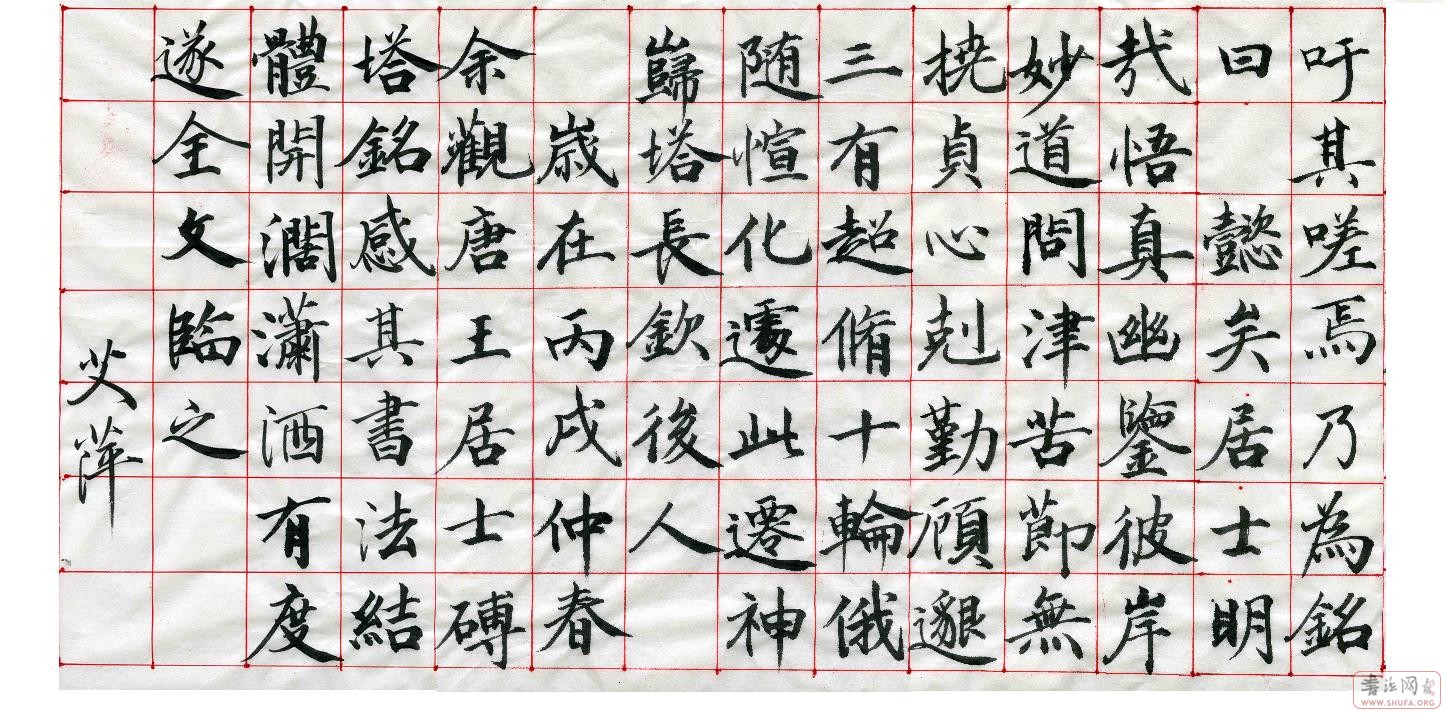 吁其嗟焉乃為銘
曰 懿矣居士明
哉悟真幽鑒彼岸
妙道問津苦節無
撓貞心剋勤頋邈
三有超脩十輪俄
随愃化遽此遷神
歸塔長欽後人
歲在丙戌仲春
余觀唐王居士磚
塔銘感其書法結
體開濶瀟洒有度
遂全文臨之
艾萍
書法网
WWW.SHUFA.ORG